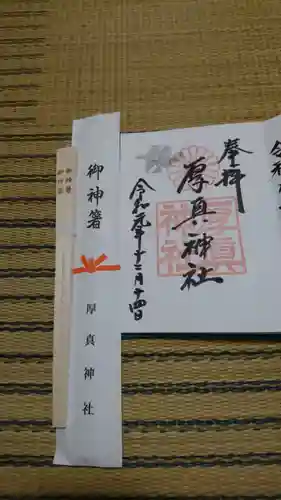 奉拝
厚真神社
厚真神社
令和元年十二月十四日
令和
御神箸
厚真神社